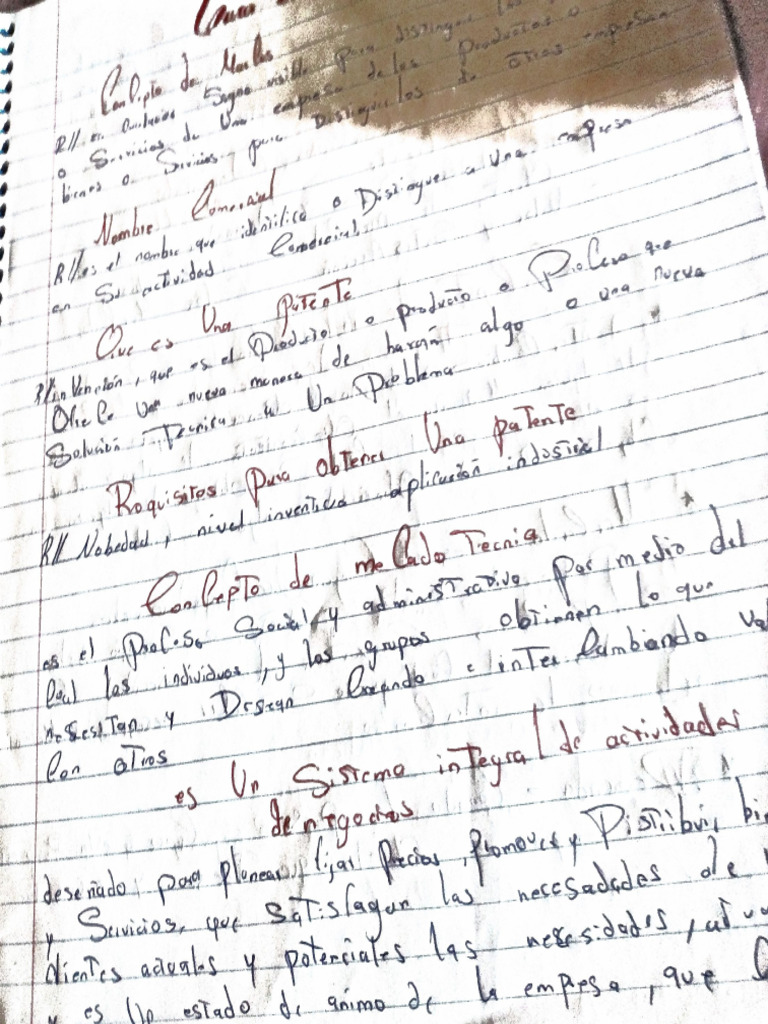 Concepto de Marca
R// es Cualquier Signo visible para distinguir los
o Servicios de Una empresa de los Productos o
bienes o Sivicios para Distinguirlos de otras empresa
Nombre Comercial
R// es el nombre que identifica o Distingue a Una empresa
en Su actividad Comercial
Que es Una patente
R// invención, que es el Producto o producto o Proceso que
Ofrece una nueva manera de hacer algo o una nueva
Solución Tecnica a Un Problema
Requisitos para obtener Una patente
R// Nobedad, nivel inventiva aplicación industrial
Concepto de mercado Tecnia
es el proceso Social y administrativo por medio del
cual los individuos, y los grupos obtienen lo que
nesesitan y Desean Creando e inter Cambiando
Con otros
es Un Sistema integral de actividades
de negocios
deseñado para planear, fijar precios, promover y Distribui,
y Servicios, que satisfagan las necesadades de
clientes actuales y potenciales las nesesidades,
y es Un estado de animo de la empresa, que